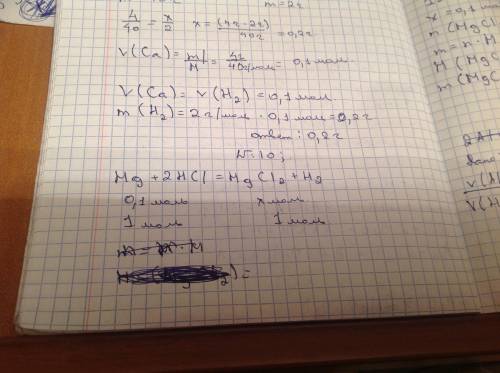 m = 2г
4/40 = x/2   x = (4г · 2г)/40г = 0,2г
ν(Ca) = m/M = 4г/40г/моль = 0,1 моль
ν(Ca) = ν(H₂) = 0,1 моль
m(H₂) = 2г/моль · 0,1 моль = 0,2г
ответ: 0,2г
N: 10;
Mg + 2HCl = MgCl₂ + H₂
0,1 моль   x моль
1 моль   1 моль
x = 0,1
n(MgC
m = n · M
M(MgC
m(MgC